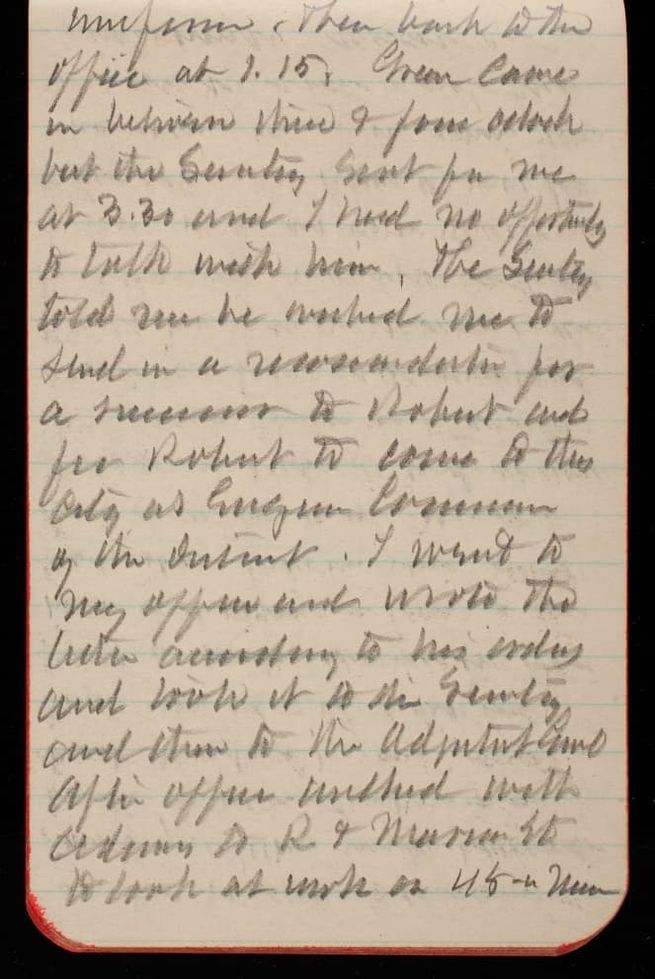 uniform. Then back to the
office at 1.15. Green came
in between three & four oclock
but the Secretary sent for me
at 3.30 and I had no opportunity
to talk with him. The Secretary
told me he wished me to
send in a recommendation for
a successor to Robert and
for Robert to come to this
City as Engineer Commr
of the District. I went to
my office and wrote the
letter according to his orders
and took it to the Secretary
and then to the Adjutant Genl
After office walked with
Adams to R & Marion St
to look at work on 48 in Main